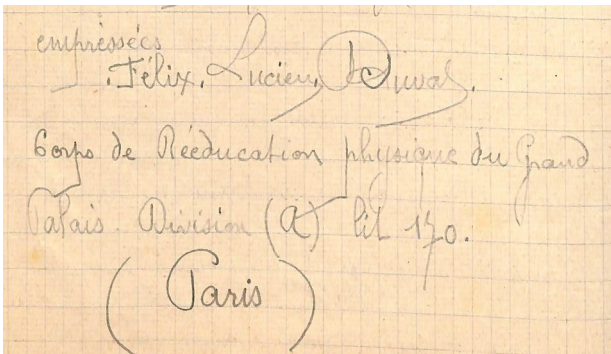 empressées
.Félix. Lucien, Duval.
Corps de Rééducation physique du Grand
Palais. Division (A) lit 170.
(Paris)